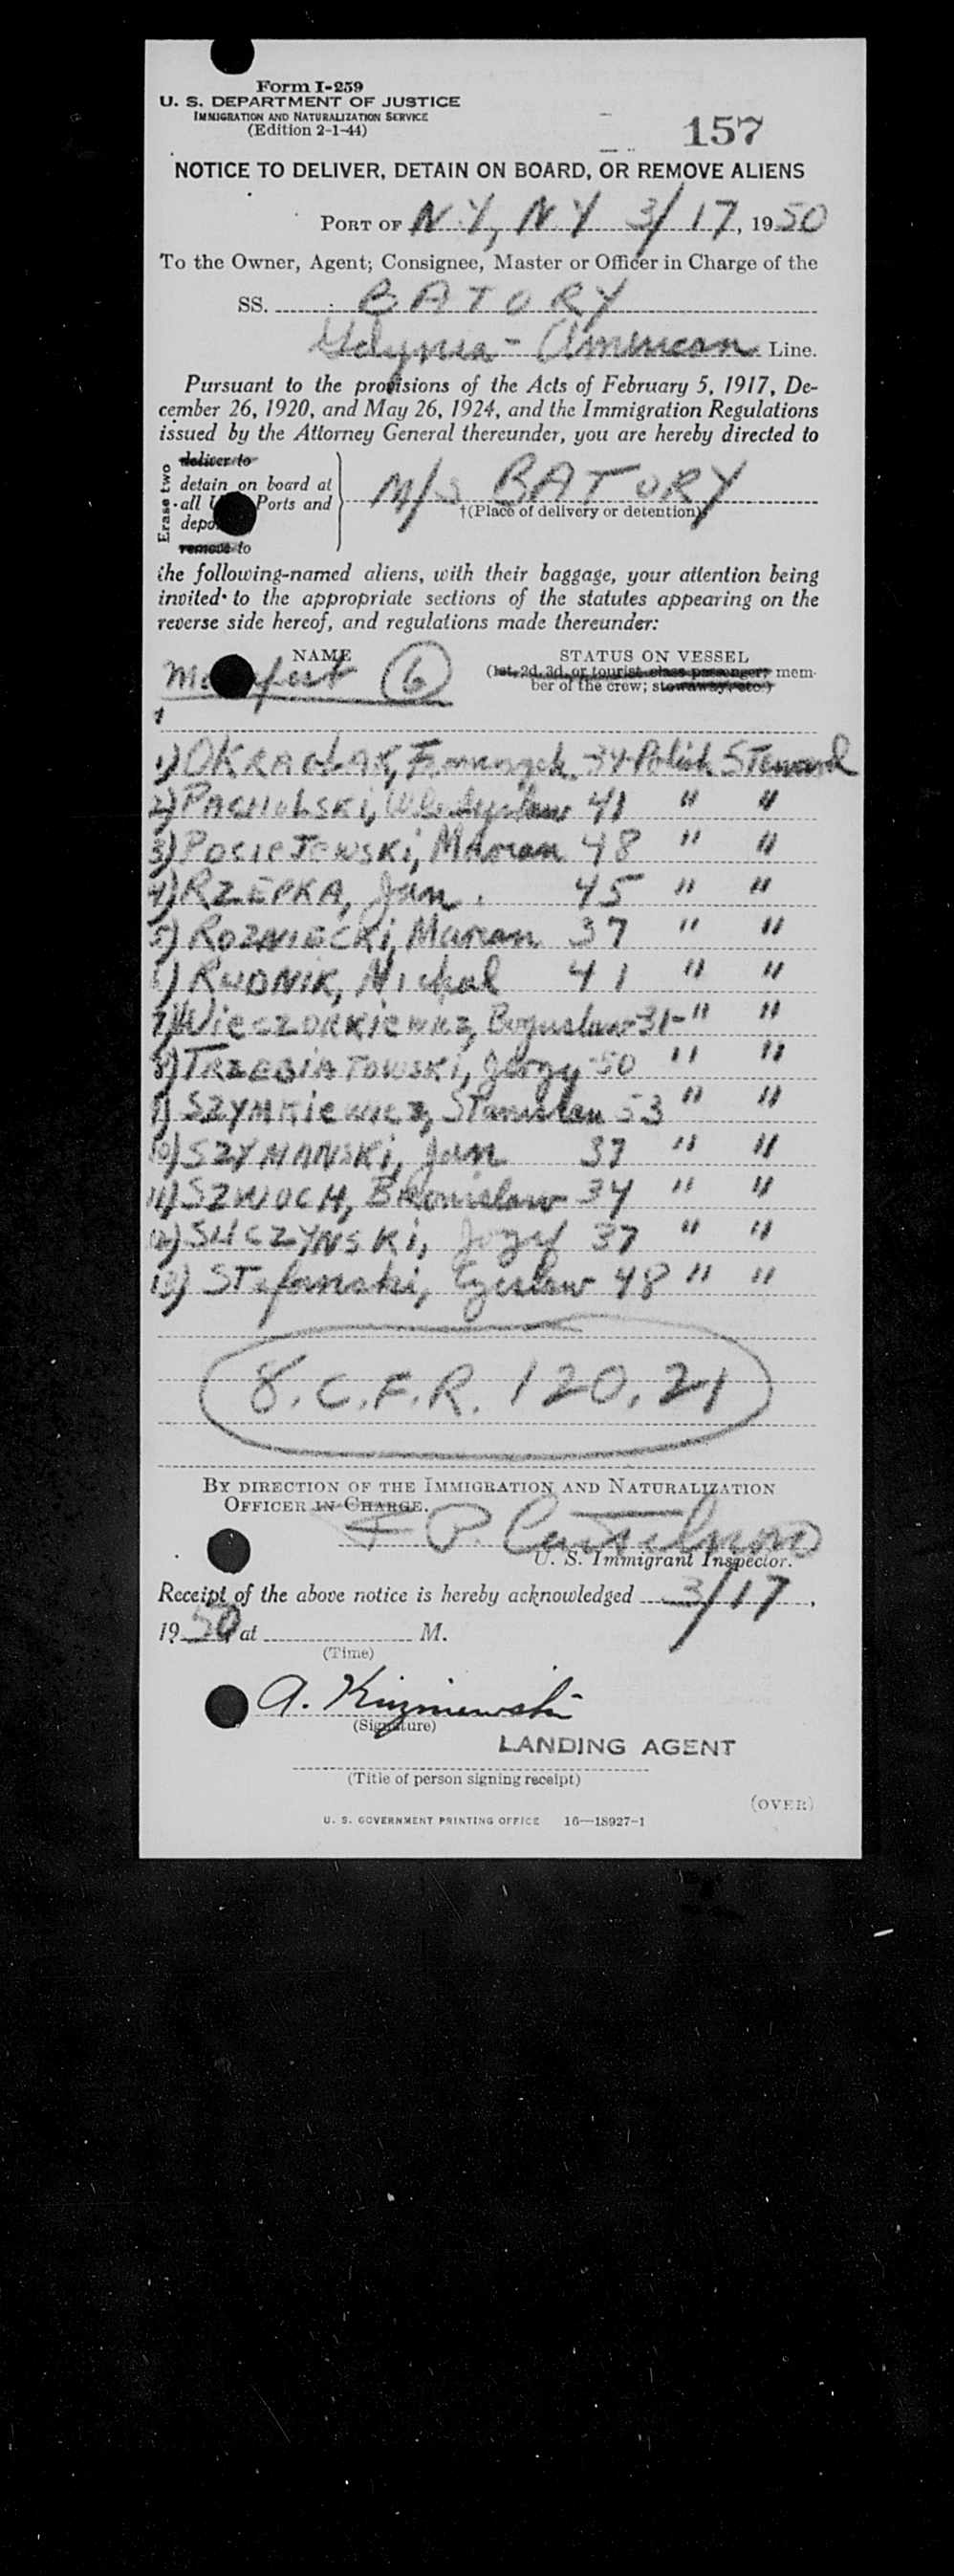 Form I-259
U. S. DEPARTMENT OF JUSTICE
IMMIGRATION AND NATURALIZATION SERVICE
(Edition 2-1-44)
157
NOTICE TO DELIVER, DETAIN ON BOARD, OR REMOVE ALIENS
PORT OF N.Y, N.Y 3/17, 1950
To the Owner, Agent; Consignee, Master or Officer in Charge of the
SS. BATORY
Gdynia - American Line.
Pursuant to the provisions of the Acts of February 5, 1917, De-
cember 26, 1920, and May 26, 1924, and the Immigration Regulations
issued by the Attorney General thereunder, you are hereby directed to
Erase two
deliver to
detain on board at
all Ports and
remove to
M/S BATORY
†(Place of delivery or detention)
the following-named aliens, with their baggage, your attention being
invited to the appropriate sections of the statutes appearing on the
reverse side hereof, and regulations made thereunder:
NAME STATUS ON VESSEL
(1st, 2d, 3d, or tourist class passenger; mem-
ber of the crew; stowaway, etc.)
6
1) OKRAGLAK, 34 Polish Steward
2) PACHOLSKi, Wladyslaw 41 " "
3) POCIEJEWSKi, Marian 48 " "
4) RZEPKA, Jan. 45 " "
5) ROZNIECKi, Marian 37 " "
6) RUDNIK, Michal 41 " "
7) WiECZORKiEWICZ, Boguslaw - 31 - " "
8) TRZEBIATOWSKI, Jerzy 50 " "
9) SZYMKiEWICZ, Stanislaw 53 " "
10) SZYMANSKi, Jan 37 " "
11) SZWOCH, Bronislaw 34 " "
12) SUCZYNSKi, Jozef 37 " "
13) Stefanski, Czeslaw 48 " "
8. C.F.R. 120.21
BY DIRECTION OF THE IMMIGRATION AND NATURALIZATION
OFFICER IN CHARGE.
U. S. Immigrant Inspector.
Receipt of the above notice is hereby acknowledged 3/17,
1950, at M.
(Time)
A.
(Signature)
LANDING AGENT
(Title of person signing receipt)
(OVER)
U. S. GOVERNMENT PRINTING OFFICE 16—18927-1